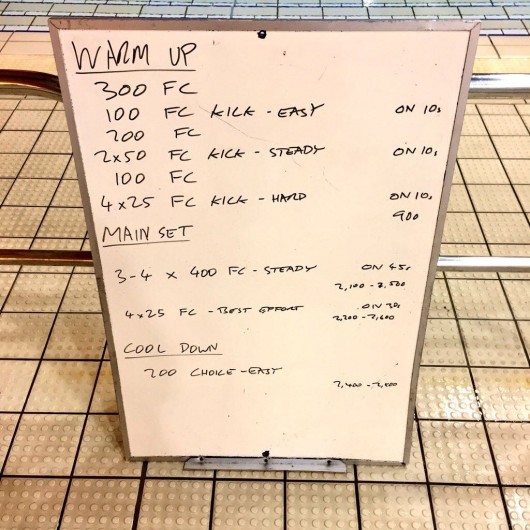 WARM UP
300 FC
100 FC KICK - EASY ON 10s
200 FC
2x50 FC KICK - STEADY ON 10s
100 FC
4x25 FC KICK - HARD ON 10s
900
MAIN SET
3-4 x 400 FC - STEADY ON 45s
2,100 - 2,500
4x25 FC - BEST EFFORT ON 30s
2,200 - 2,600
COOL DOWN
200 CHOICE - EASY
2,400 - 2,800